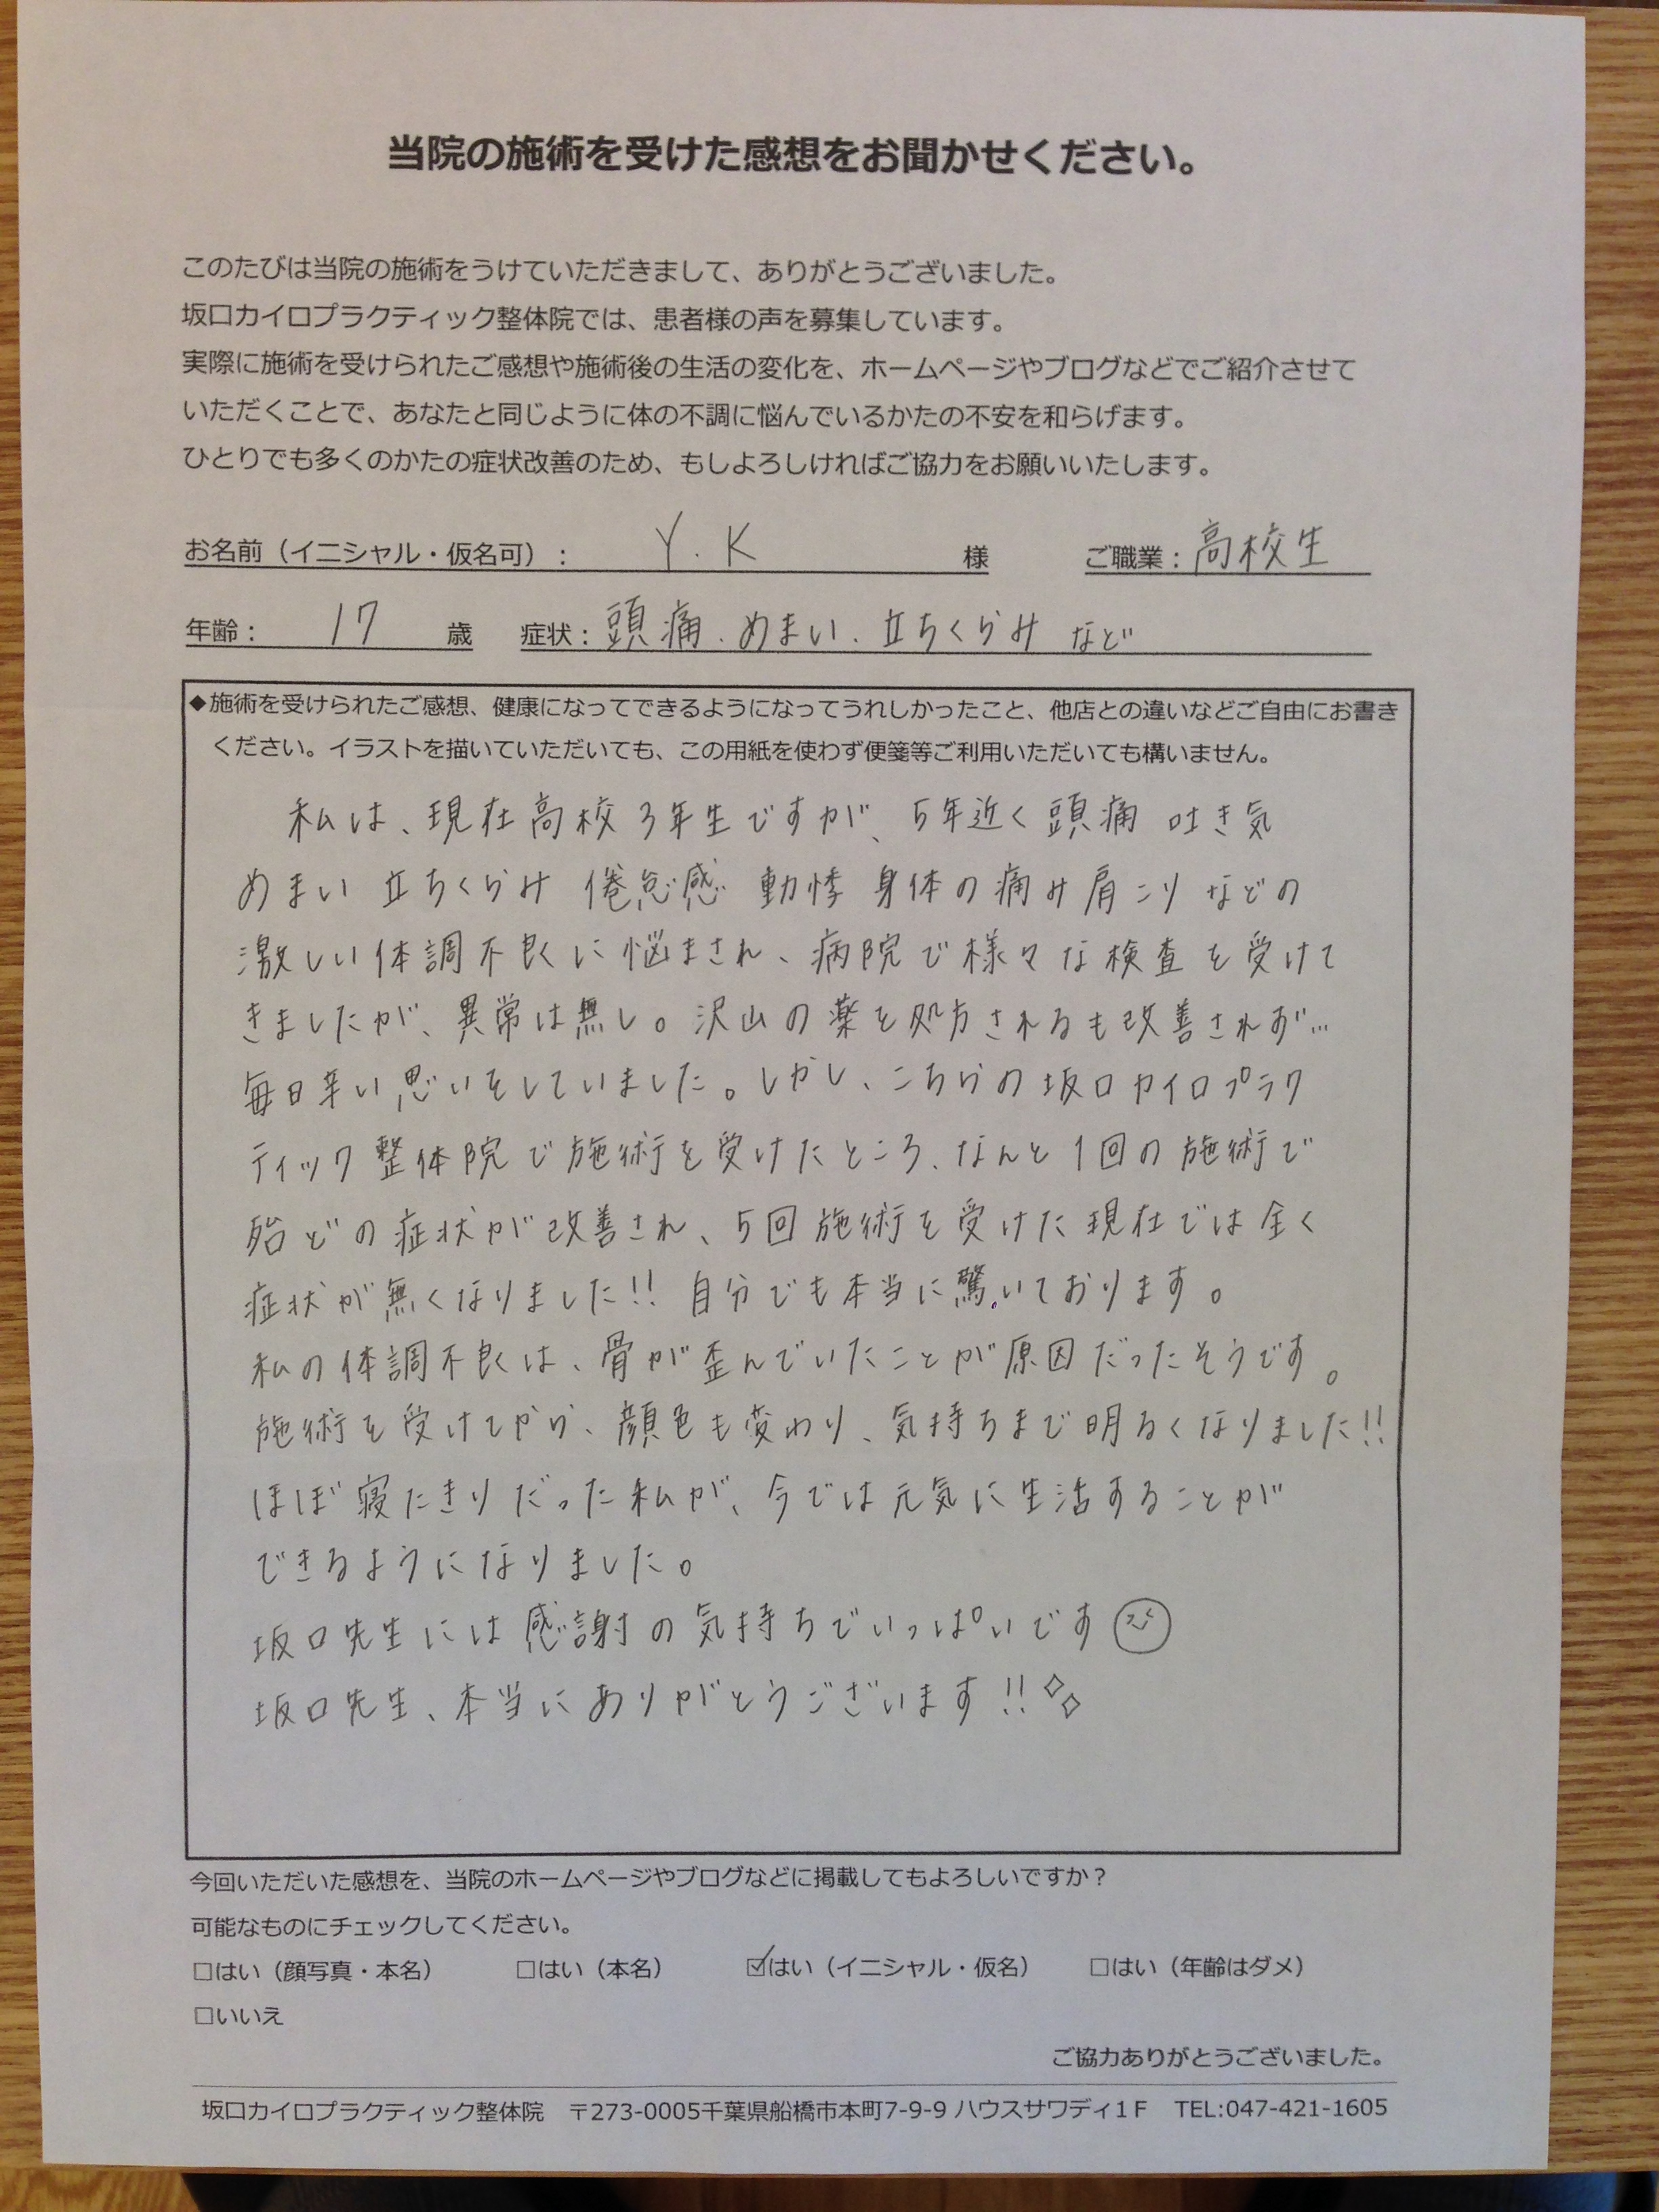 当院の施術を受けた感想をお聞かせください。
このたびは当院の施術をうけていただきまして、ありがとうございました。
坂口カイロプラクティック整体院では、患者様の声を募集しています。
実際に施術を受けられたご感想や施術後の生活の変化を、ホームページやブログなどでご紹介させて
いただくことで、あなたと同じように体の不調に悩んでいるかたの不安を和らげます。
ひとりでも多くのかたの症状改善のため、もしよろしければご協力をお願いいたします。
お名前（イニシャル・仮名可）： Y.K 様 ご職業：高校生
年齢： 17 歳 症状：頭痛.めまい.立ちくらみ など
◆施術を受けられたご感想、健康になってできるようになってうれしかったこと、他店との違いなどご自由にお書き
ください。イラストを描いていただいても、この用紙を使わず便箋等ご利用いただいても構いません。
私は、現在高校3年生ですが、5年近く頭痛 吐き気
めまい 立ちくらみ 倦怠感 動悸 身体の痛み肩こり などの
激しい体調不良に悩まされ、病院で様々な検査を受けて
きましたが、異常は無し。沢山の薬を処方されるも改善されず…
毎日辛い思いをしていました。しかし、こちらの坂口カイロプラク
ティック整体院で施術を受けたところ、なんと1回の施術で
殆どの症状が改善され、5回施術を受けた現在では全く
症状が無くなりました!! 自分でも本当に驚いております。
私の体調不良は、骨が歪んでいたことが原因だったそうです。
施術を受けてから、顔色も変わり、気持ちまで明るくなりました!!
ほぼ寝たきりだった私が、今では元気に生活することが
できるようになりました。
坂口先生には感謝の気持ちでいっぱいです
坂口先生、本当にありがとうございます!!
今回いただいた感想を、当院のホームページやブログなどに掲載してもよろしいですか？
可能なものにチェックしてください。
□はい（顔写真・本名） □はい（本名） ☑はい（イニシャル・仮名） □はい（年齢はダメ）
□いいえ
ご協力ありがとうございました。
坂口カイロプラクティック整体院 〒273-0005千葉県船橋市本町7-9-9 ハウスサワディ1F TEL:047-421-1605